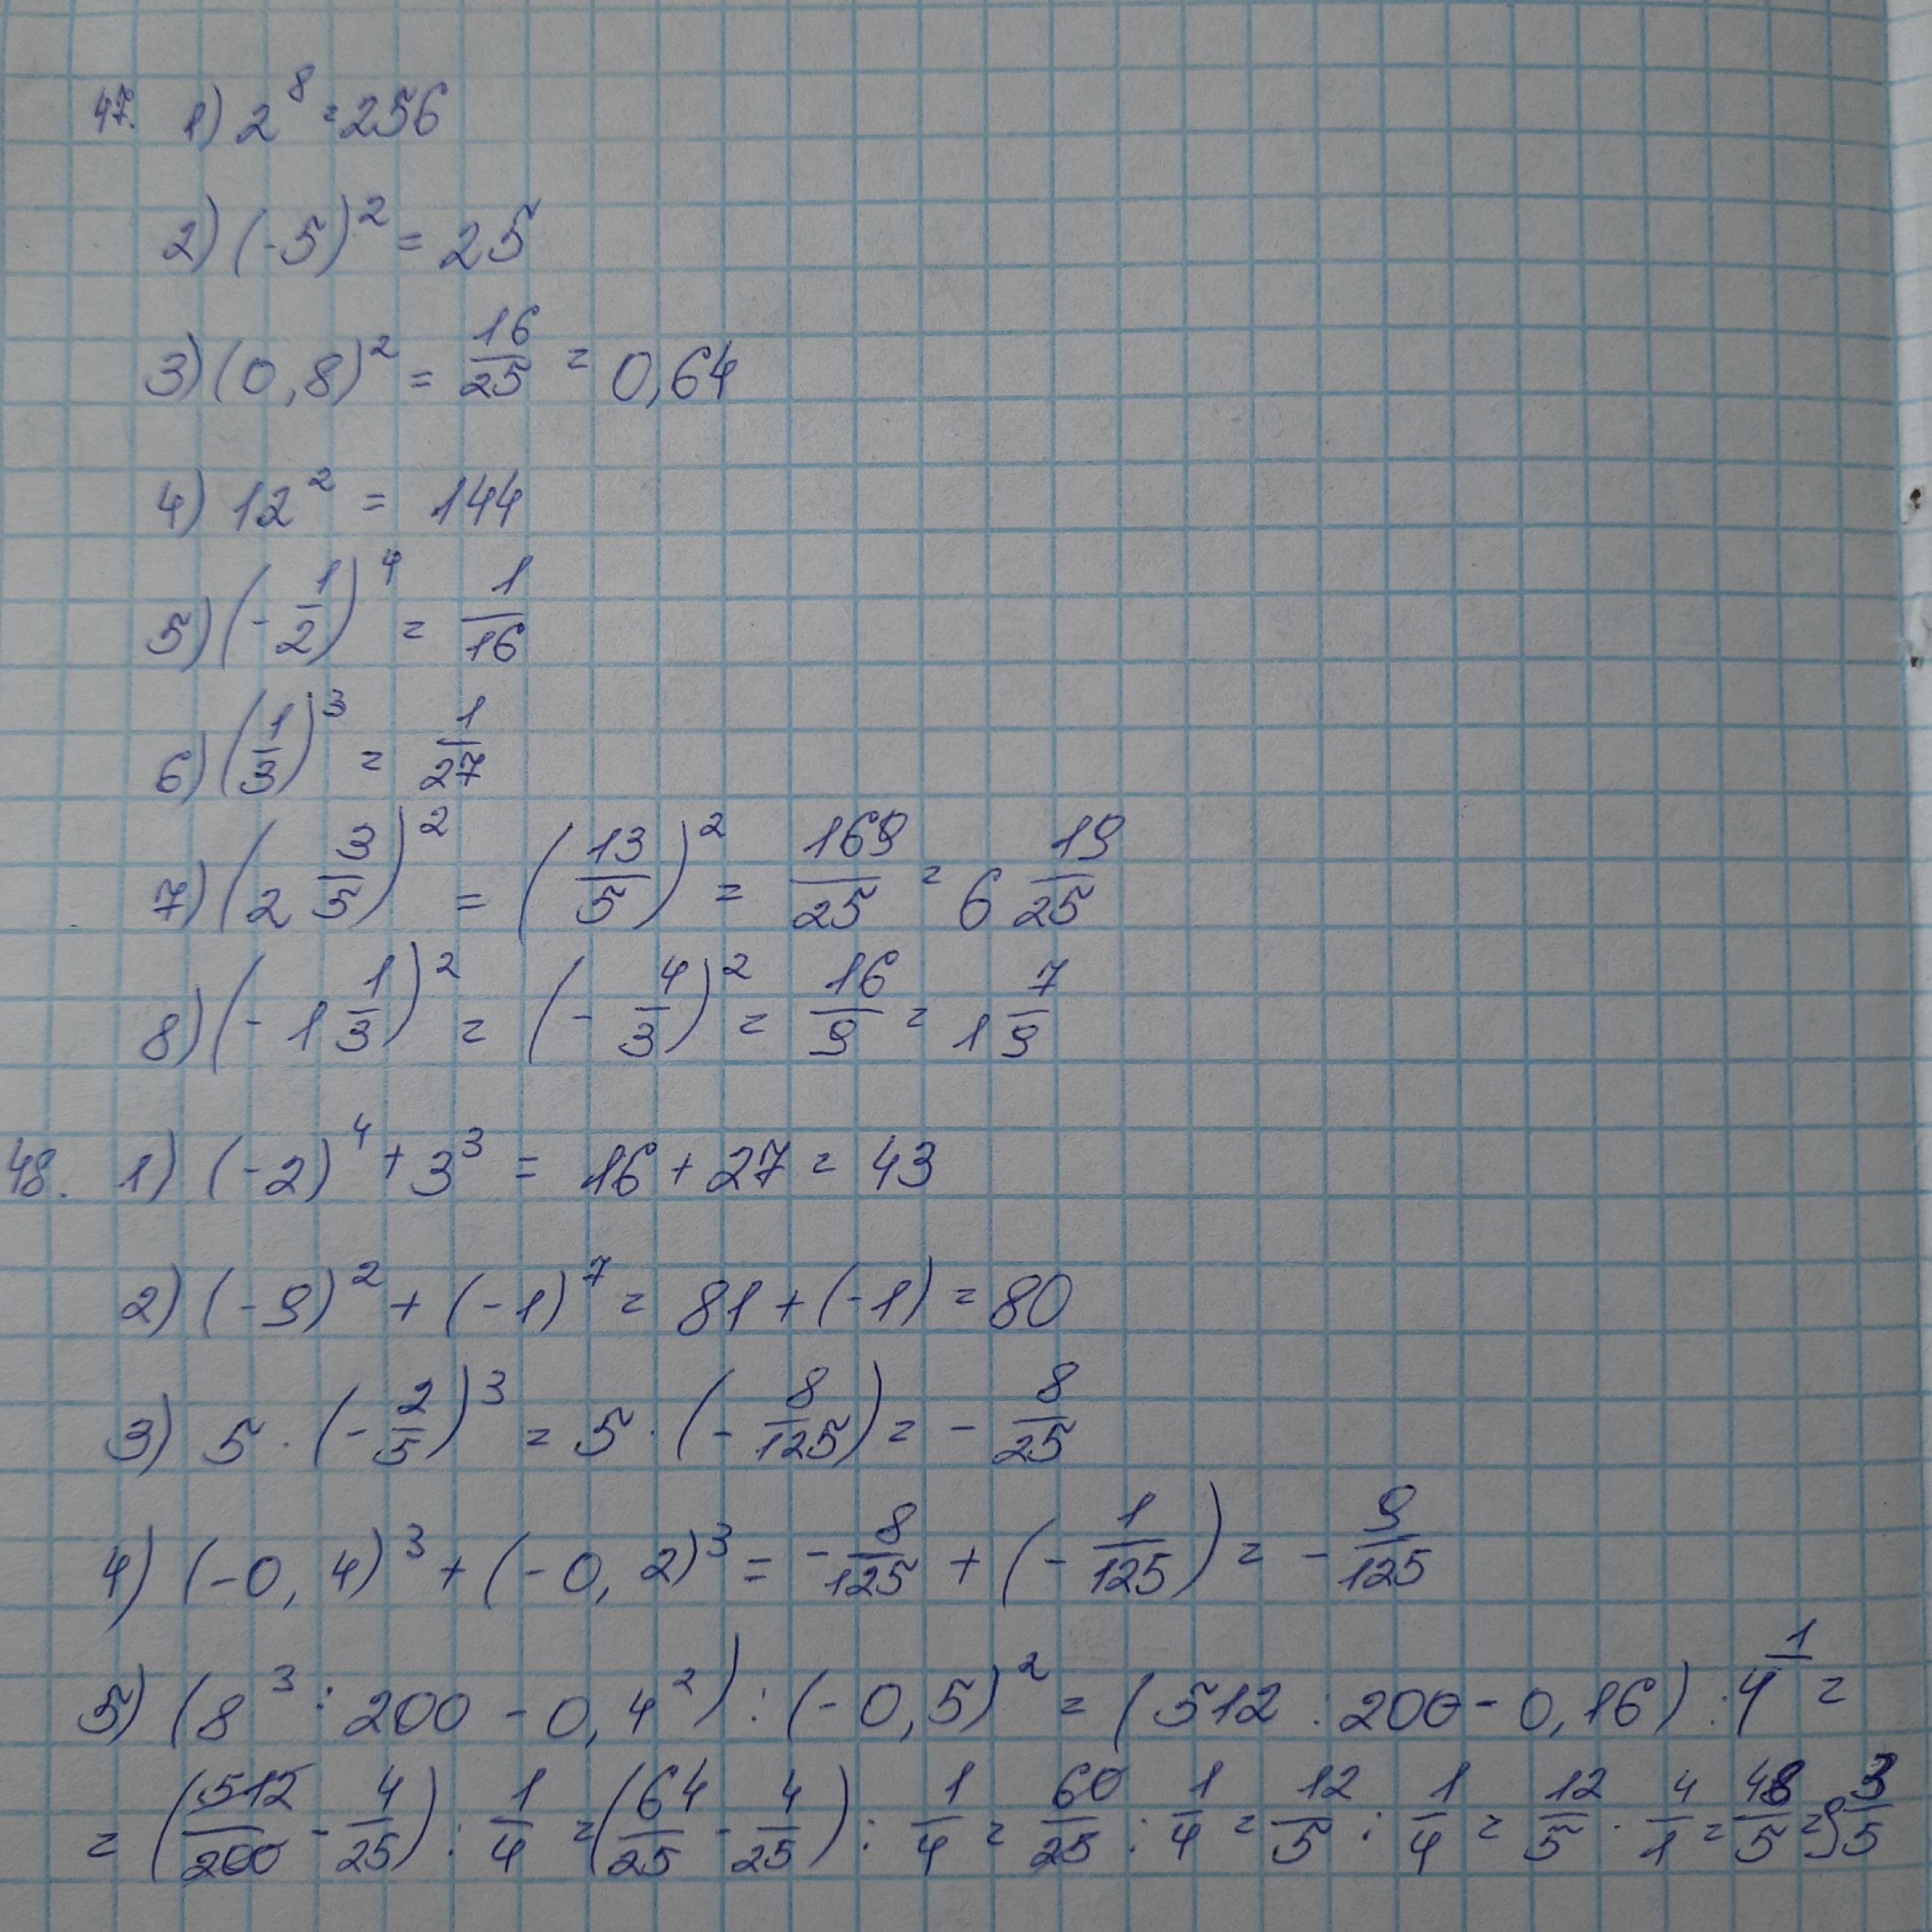 47. 1) 2^8 = 256
2) (-5)^2 = 25
3) (0,8)^2 = 16/25 = 0,64
4) 12^2 = 144
5) (-1/2)^4 = 1/16
6) (1/3)^3 = 1/27
7) (2 3/5)^2 = (13/5)^2 = 169/25 = 6 19/25
8) (-1 1/3)^2 = (-4/3)^2 = 16/9 = 1 7/9
48. 1) (-2)^4 + 3^3 = 16 + 27 = 43
2) (-9)^2 + (-1)^7 = 81 + (-1) = 80
3) 5 · (-2/5)^3 = 5 · (-8/125) = -8/25
4) (-0,4)^3 + (-0,2)^3 = -8/125 + (-1/125) = -9/125
5) (8^3 : 200 - 0,4^2) : (-0,5)^2 = (512 : 200 - 0,16) : 1/4 =
= (512/200 - 4/25) : 1/4 = (64/25 - 4/25) : 1/4 = 60/25 : 1/4 = 12/5 : 1/4 = 12/5 · 4/1 = 48/5 = 9 3/5